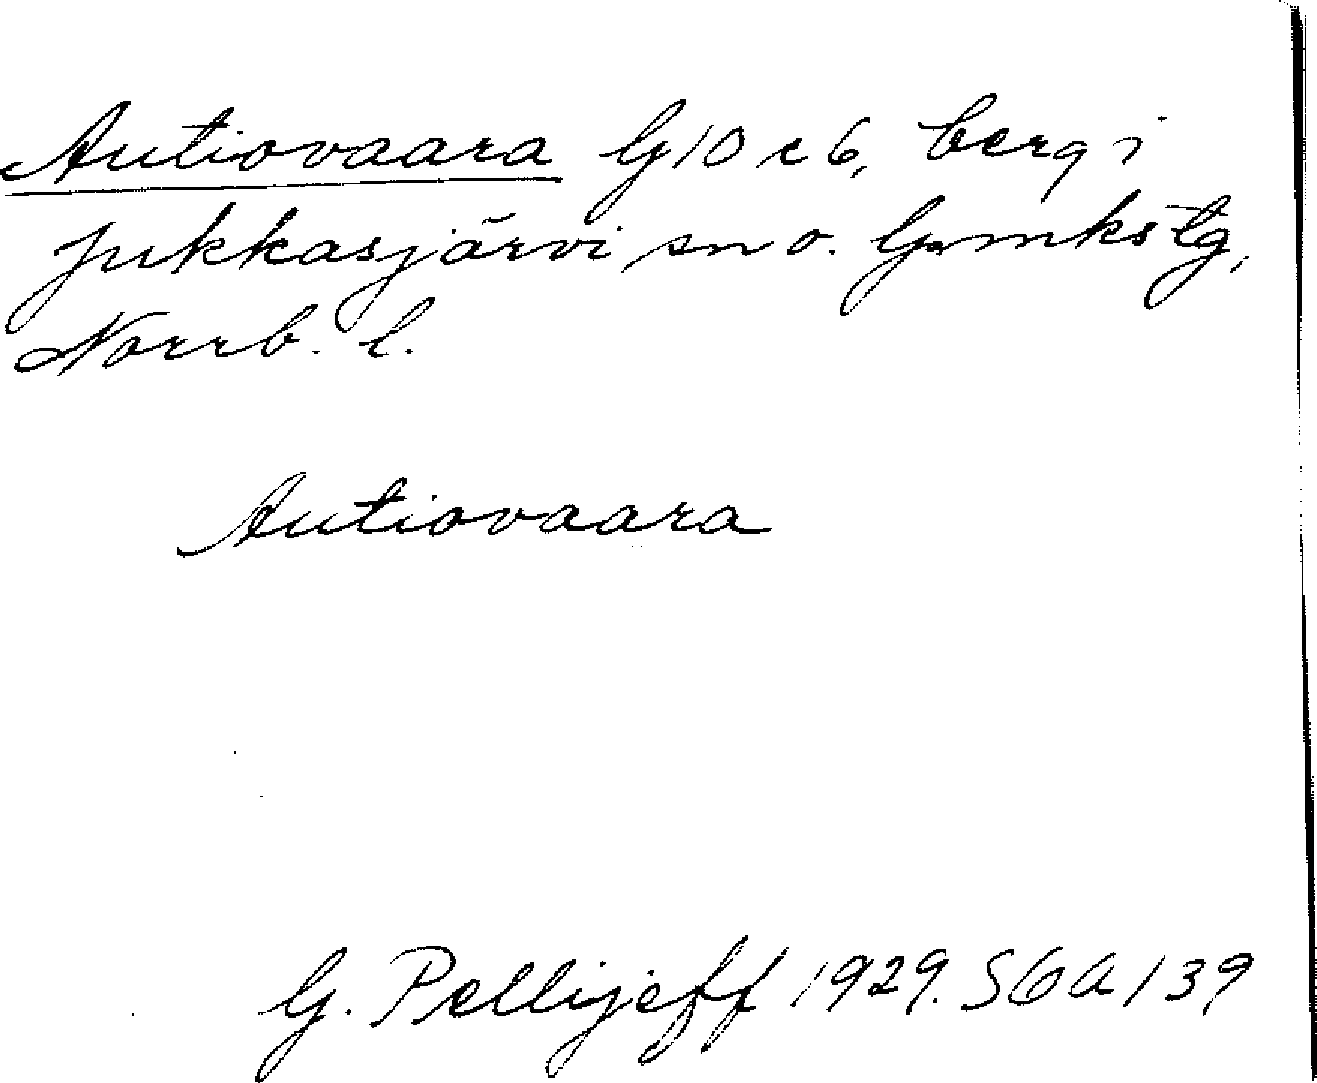 Autiovaara G10 c6, berg i
Jukkasjärvi sn o. Gmkstg,
Norrb. l.
Autiovaara
G. Pellijeff 1929. SGA 139